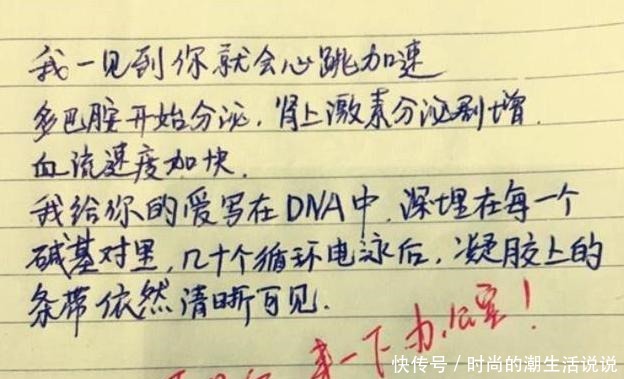 我一见到你就会心跳加速
多巴胺开始分泌,肾上激素分泌剧增.
血流速度加快.
我给你的爱写在DNA中,深埋在每一个
碱基对里,几十个循环电泳后,凝胶上的
条带依然清晰可见.
来一下办公室!
快传号/时尚的潮生活说说